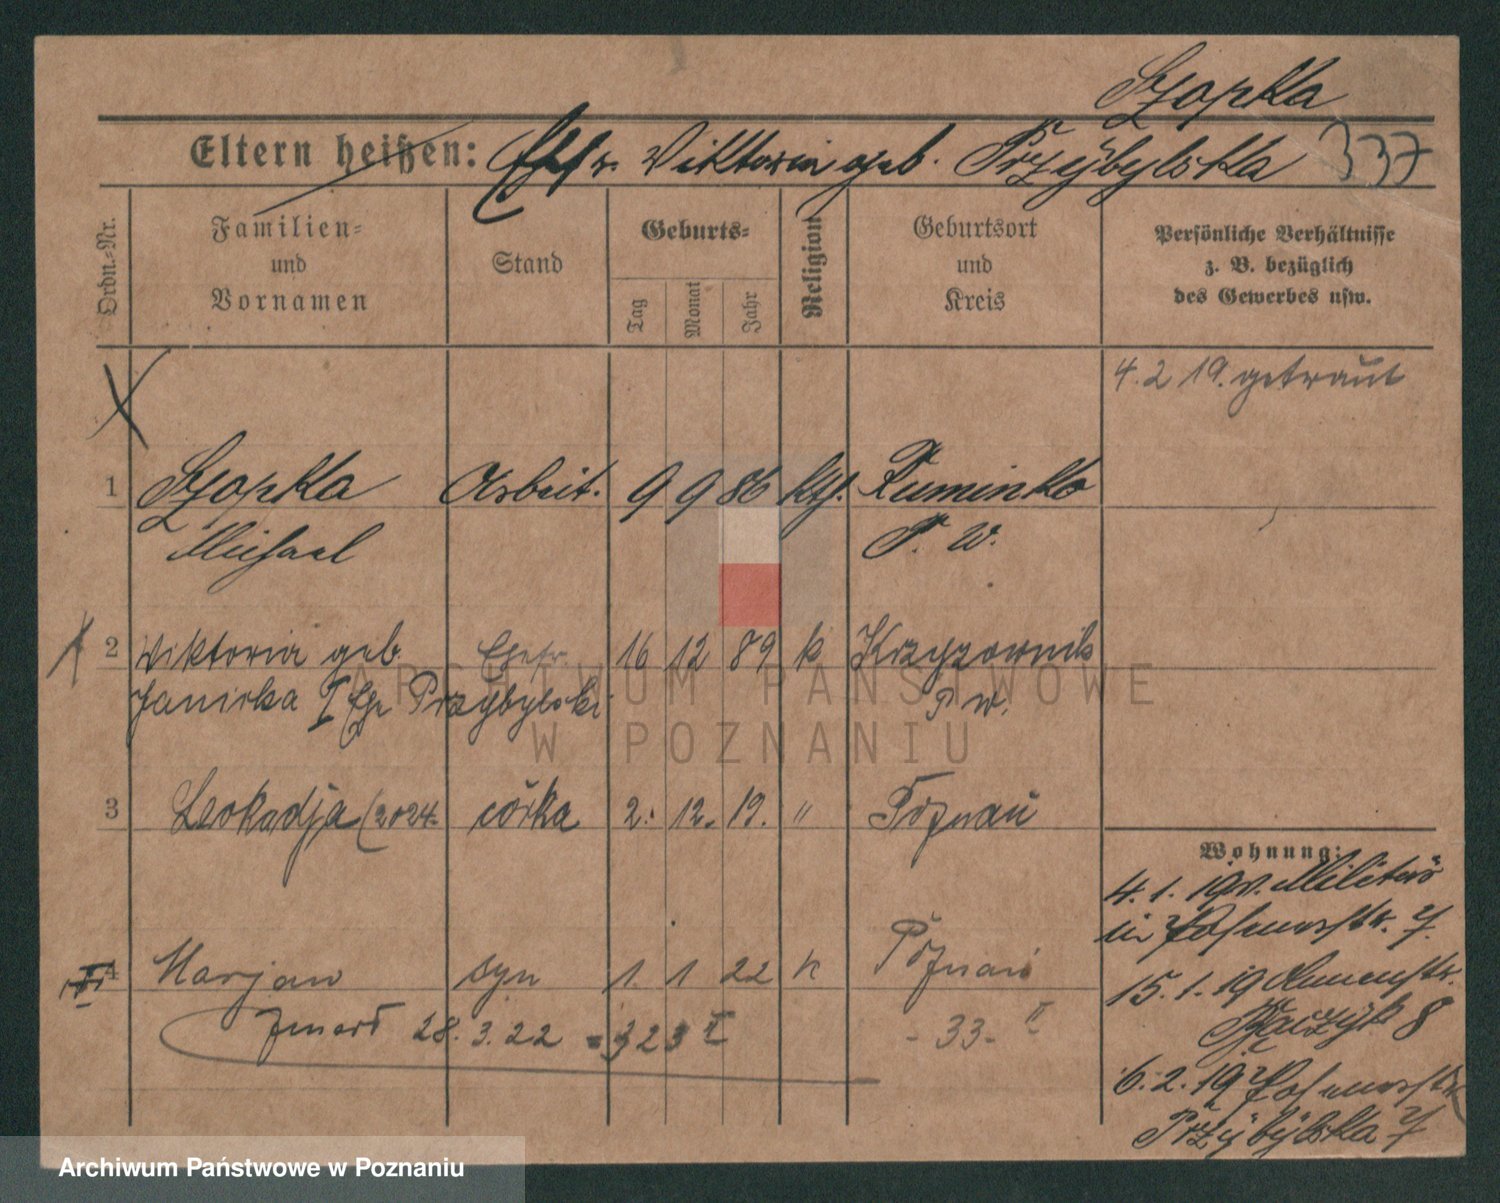 Szopka
Eltern heißen: Ehfr. Viktoria geb. Przybylska 337
Ordn.-Nr.
Familien-
und
Vornamen
Stand
Geburts-
Tag
Monat
Jahr
Religion
Geburtsort
und
Kreis
Persönliche Verhältnisse
z. B. bezüglich
des Gewerbes usw.
4.2 19. getraut
1 Szopka Arbeit. 9 9 86 kth. Ruminko
Michael P. W.
2 Viktoria geb. Ehefr. 16 12 89 k Krzyzownik
Janicka I Ehe Przybylski P w.
3 Leokadja (2024 córka 2. 12. 19. " Poznań
4 Marjan syn 1. 1 22 k Poznań
zmarł 28. 3. 22 = 323 II - 33 - II
Wohnung:
4. 1. 19 v. Militär
in Posenerstr. 7.
15. 1. 19
8
6. 2. 19 Posenerstr
Przybylska 7
ARCHIWUM PAŃSTWOWE
W POZNANIU
Archiwum Państwowe w Poznaniu